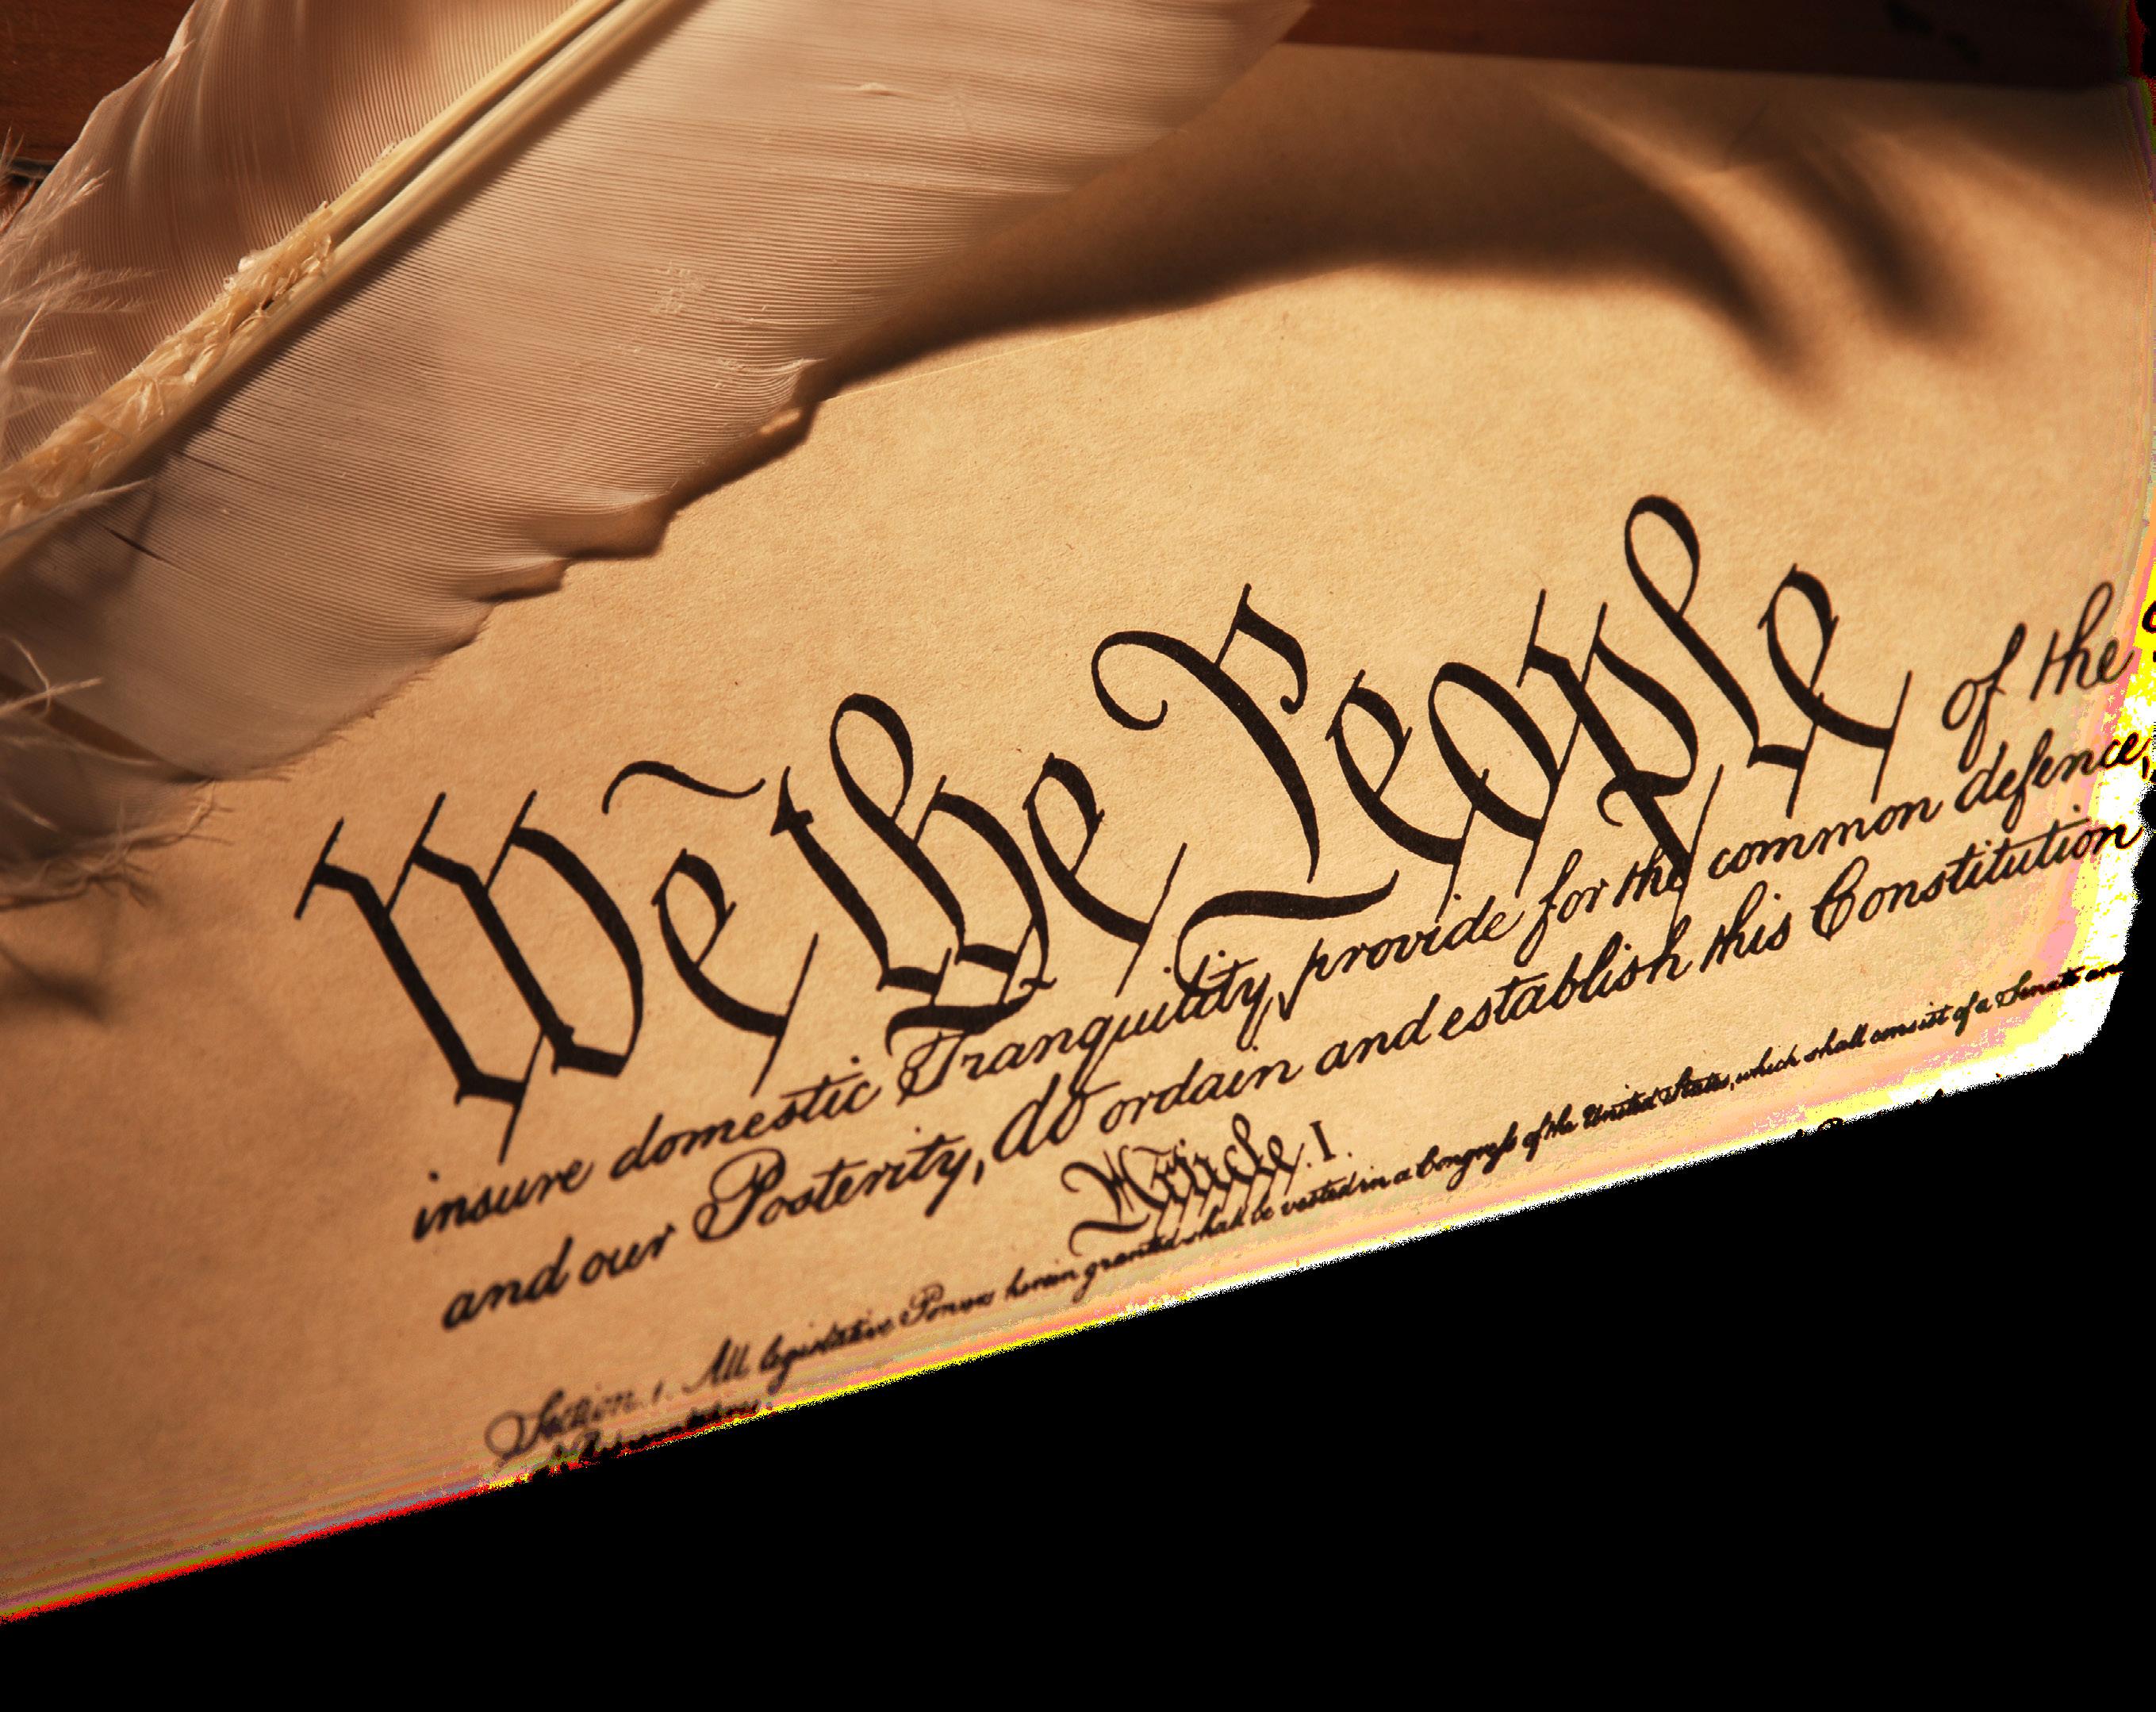 We the People of the
insure domestic Tranquility, provide for the common defence,
and our Posterity, do ordain and establish this Constitution
Article. I.
Section. 1. All legislative Powers herein granted shall be vested in a Congress of the United States, which shall consist of a Senate and